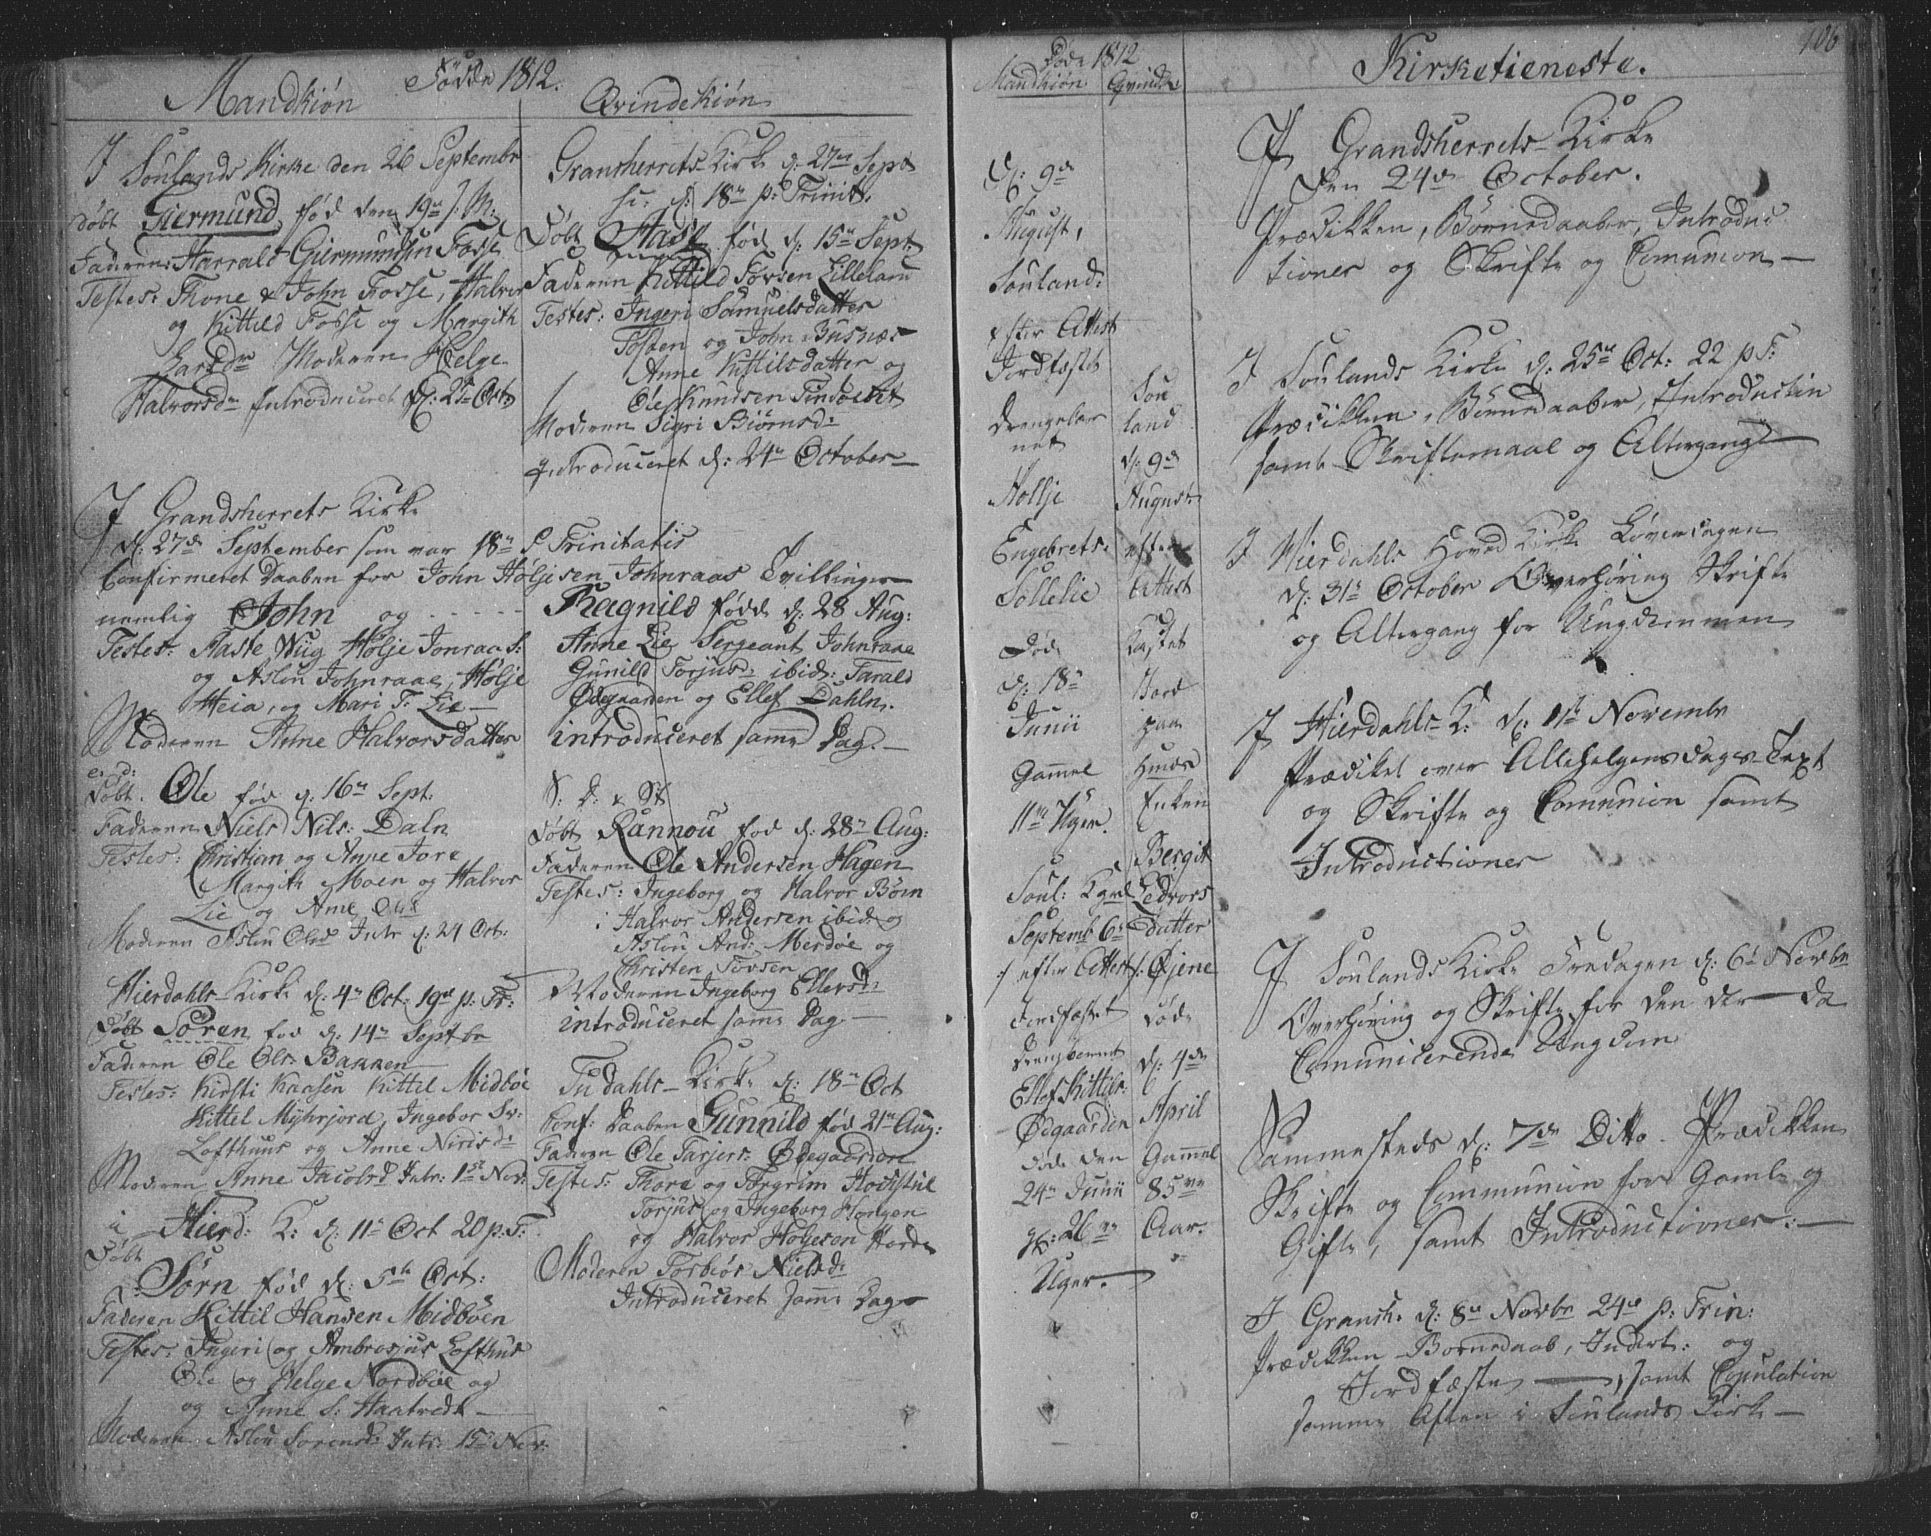 Fødde 1812.
Mandkiøn
I Soulands Kirke den 26 Septembr
døbt Giermund, fød den 19de s. M.
Faderen: Harrald Giermundsen Fosse
Testes: Thone & John Fosse, Halvor
og Kittild Fosse og Margith
Larsdr Moderen Helge
Halvorsdr Introduceret d: 25 Octr
I Grandsherrets Kirke
d: 27de September som var 18de P Trinitatis
Confirmeret Daaben for John Høljesen Johnraas Tvillinger
nemlig John og
Testes: Aaste Wug Hølje Jonraas:
og Aslou Johnraae, Hølje
Heia, og Mari T. Lie
Moderen Anne Halvorsdatter
e. d:
Døbt. Ole fød d: 16de Sept:
Faderen Niels Nils: Daln
Testes: Christian og Anne Jore
Margith Moen og Halvor
Lie og Anne Ols:
Moderen Aslou Olsd Intr d: 24 Oct:
Hierdahls Kirke d: 4de Oct: 19de p. Tr:
Døbt Sören fød d: 14de Septbr
Faderen Ole Ols: Bakken
Testes: Kirsti Kaasen Kittel Midbøe
Kittel Myhrjord, Ingebor Sv:
Lofthuus og Anne Niris dr
Moderen Anne Jacobsd Intr: 1ste Nov:
i Hierd: K: d: 11te Oct 20 p. T:
Døbt
Sörn fød d: 5te Oct:
Faderen Kittil Hansen Midbøen
Testes: Ingeri og Ambrosius Lofthus
Ole og Helge Nordbøe og
og Anne S: Haatvedt
Moderen Aslou Sørensd: Intr: 15de Nov:
Qvindekiøn
Gransherrets Kirke d: 27de Septr
d: 18de p: Trinit.
Døbt Aase fød d: 15de Sept:
Faderen Kittild Tovsen Lilleland
Testes: Ingeri Samuelsdatter
Tosten og John Busnæs
Anne Kittilsdatter og
Ole Knudsen Tindøtvet
Moderen Sigri Biörnsd:
Introduceret d: 24de October
Ragnild födt d: 28 Aug:
Anne Lie Sergeant Johnraae
Gunild Torjus: ibid: Tarald
Ødegaarden og Ellef Dahln.
introduceret samme Dag.
S: D: & St
Døbt Rannou fød d: 28de Aug:
Faderen Ole Andersen Hagen
Testes: Ingeborg og Halvor Böen
Halvor Andersen ibid: og
Aslou And: Merdøe og
Christen Tovsen
Moderen Ingeborg Ellefsd:
introduceret samme Dag
Tudahls Kirke d: 18de Oct
Conf: Daaben Gunnild fød 21de Aug:
Faderen Ole Tarjers: Ødegaarden
Testes: Thore og Torgrim Hovistul
Torjus og Ingeborg Hongen
og Halvor Høljeson
Moderen Torbiör Nielsd:
Introduceret samme Dag
Døde 1812
Mandkiön
D: 9de
August,
Souland:
efter Attest
Jordfæstet
Drengebar
net
Hollje
Engebrets:
Sollelie
Døde
d: 18de
Junii
Gammel
11ve Uger.
Soul: K
Septemb 6te
efter Attest
Jordfæstet
Drengebarnet
Ellef Kittils:
Ødgaarden
døde den
24de Junii
gl: 26
Uger.
Qvindek
Sou
land
d: 9de
August
efter
Attest
Kastet
Jord
paa
Huus
Enken
Bergit
Ledvors
Datter
Øjene
døde
d: 4de
April
Gammel
85ve
Aar.
106
Kirketieneste.
I Grandsherrets Kirke
den 24de October.
Prædikken, Børnedaaber, Introduc
tioner og Skrifte og Comunion
I Soulands Kirke d: 25de Oct: 22 p T:
Prædikken, Børnedaaber, Introduction
samt Skriftemaal og Altergang
I Hierdahls Hoved Kirke Løverdagen
d: 31te October Overhöring Skrifte
og Altergang for Ungdommen
I Hierdahls K: d: 1ste Novembr
Prædiket over Allehelgensdages Text
og Skrifte og Comunion samt
Introductioner
I Soulands Kirke Fredagen d: 6te Novbr
Overhöring og Skrifte for den der da
Comunicerende Ungdom
Sammesteds d: 7de Ditto. Prædikken
Skrifte og Communion for Gamle og
Gifte, samt Introductioner:
I Gransh. d: 8de Novbr 24de p. Trin:
Prædikken Bornedaab, Indert: og
Jordfæste, samt Copulation
samme Aften i Soulands Kirke